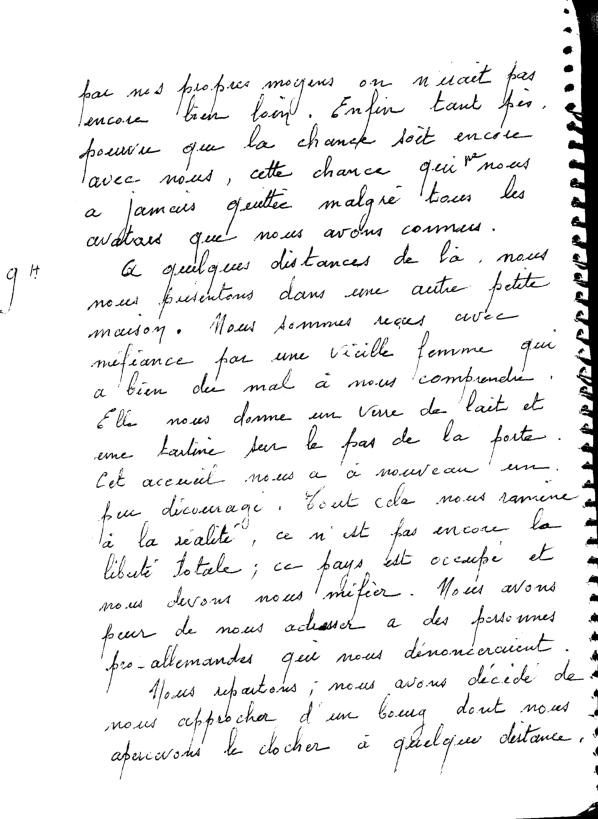 par nos propres moyens on n'irait pas
encore bien loin. Enfin tant pis.
pourvu que la chance soit encore
avec nous, cette chance qui ne nous
a jamais quittée malgré tous les
avatars que nous avons connus.
A quelques distances de là, nous
9H
nous présentons dans une autre petite
maison. Nous sommes reçus avec
méfiance par une vieille femme qui
a bien du mal à nous comprendre.
Elle nous donne un verre de lait et
une tartine sur le pas de la porte.
Cet accueil nous a à nouveau un
peu découragé. Tout cela nous ramène
à la réalité, ce n'est pas encore la
liberté totale ; ce pays est occupé et
nous devons nous méfier. Nous avons
peur de nous adresser a des personnes
pro-allemandes qui nous dénonceraient.
Nous repartons ; nous avons décidé de
nous approcher d'un bourg dont nous
apercevons le clocher à quelque distance.